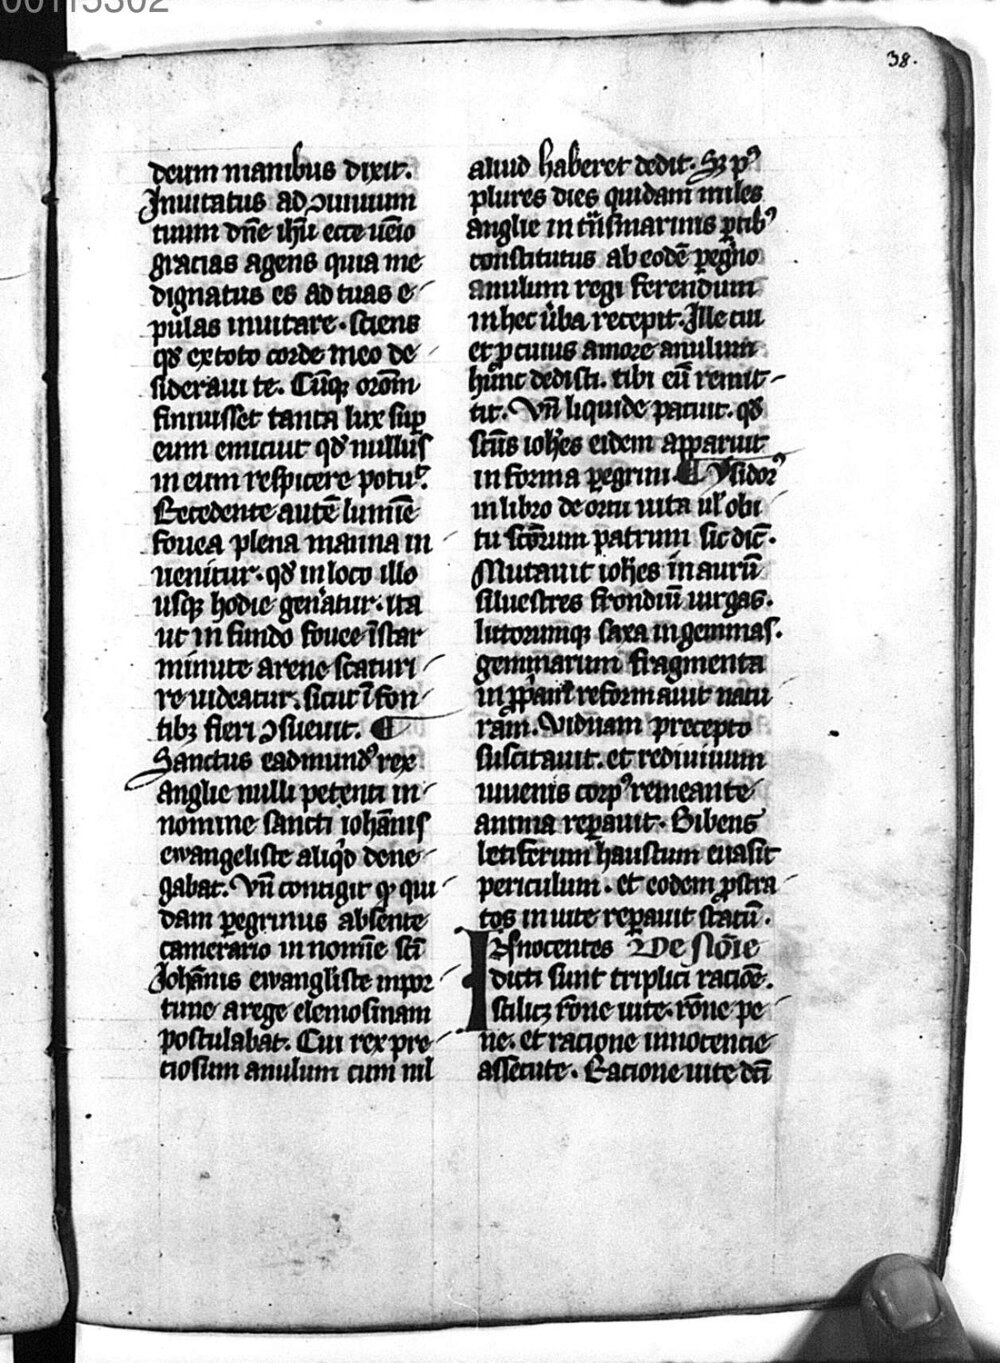 00115302
38.
deum manibus dixit.
Inuitatus ad ↄuiuium
tuum dn̄e ih̄u ecce uēio
gracias agens quia me
dignatus es ad tuas e
pulas inuitare. sciens
qd̛ ex toto corde meo de
sideraui te. Cūqꝫ orōm̄
finiuisset tanta lux suꝑ
eum emicuit qd̛ nullus
in eum respicere potuit.
Recedente autē lumīe
fouea plena manna in
uenitur. qd̛ in loco illo
usqꝫ hodie gen̓atur. ita
ut in fundo fouee īstar
minute arene scaturi
re uideatur. sicut ī fon
tibꝫ fieri ↄsueuit. ¶
Sanctus eadmundꝰ rex
anglie nulli petenti in
nomine sancti ioh̄anis
ewangeliste aliqͦd dene
gabat. Vn̄ contigit ꝙ qui
dam ꝑegrinus absente
camerario in nomīe sc̄i
Ioh̄anis ewangliste inpor
tune a rege elemosinam
postulabat. Cui rex pre
ciosum anulum cum nil
aliud haberet dedit. Sꝫ pꝰ
plures dies quidam miles
anglie in tn̄smarinis ꝑtibꝰ
constitutus ab eodē ꝑegͥno
anulum regi ferendum
in hec ūba recepit. Ille cui
et ꝓ cuius amore anulum
hunc dedisti. tibi eū remit
tit. Vn̄ liquide patuit. qd̛
sc̄us ioh̄es eidem apparuit
in forma ꝑegrini. ¶ Ysidorꝰ
in libro de ortu uita ul̛ obi
tu sc̄orum patrum sic dic̄.
Mutauit ioh̄es in aurū
siluestres frondiū uirgas.
litorumqꝫ saxa in gemmas.
gemmarum fragmenta
in ꝓpͥam reformauit natu
ram. Viduam precepto
suscitauit. et rediuiuum
iuuenis corpꝰ remeante
anima reꝑauit. Bibens
letiferum haustum euasit
periculum. et eodem ꝓstra
tos in uite reꝑauit statū.
Innocentes De Noīe
dicti sunt triplici racōe.
scilicꝫ rōne uite. rōne pe
ne. et racione innocencie
assecute. Racione uite dc̄i